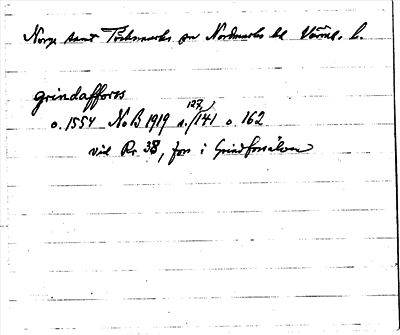 Norge samt Töcksmarks o Nordmarks hd Värml. l.
grindafforss
o. 1554 NoB 1919 s. 123, /141 o 162
vid Rr 38, fors i Grindforsälven